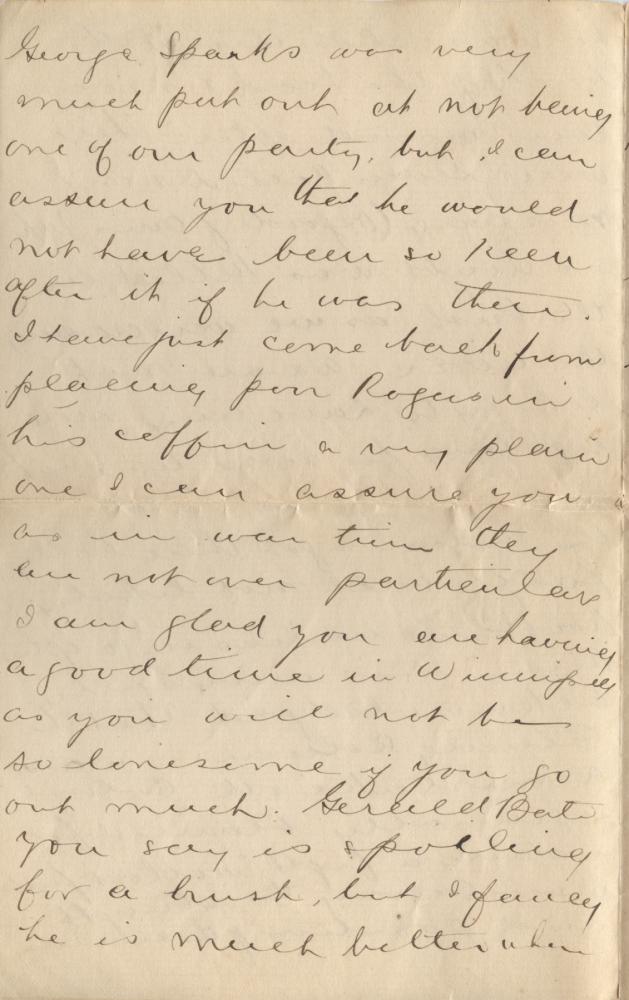 George Sparks was very
much put out at not being
one of our party, but I can
assure you that he would
not have been so keen
after it if he was there.
I have just come back from
placing poor Rogers in
his coffin a very plain
one I can assure you
as in war time they
are not over particular
I am glad you are having
a good time in Winnipeg
as you will not be
so lonesome if you go
out much. Gerald Bate
you say is spoiling
for a brush, but I fancy
he is much better where